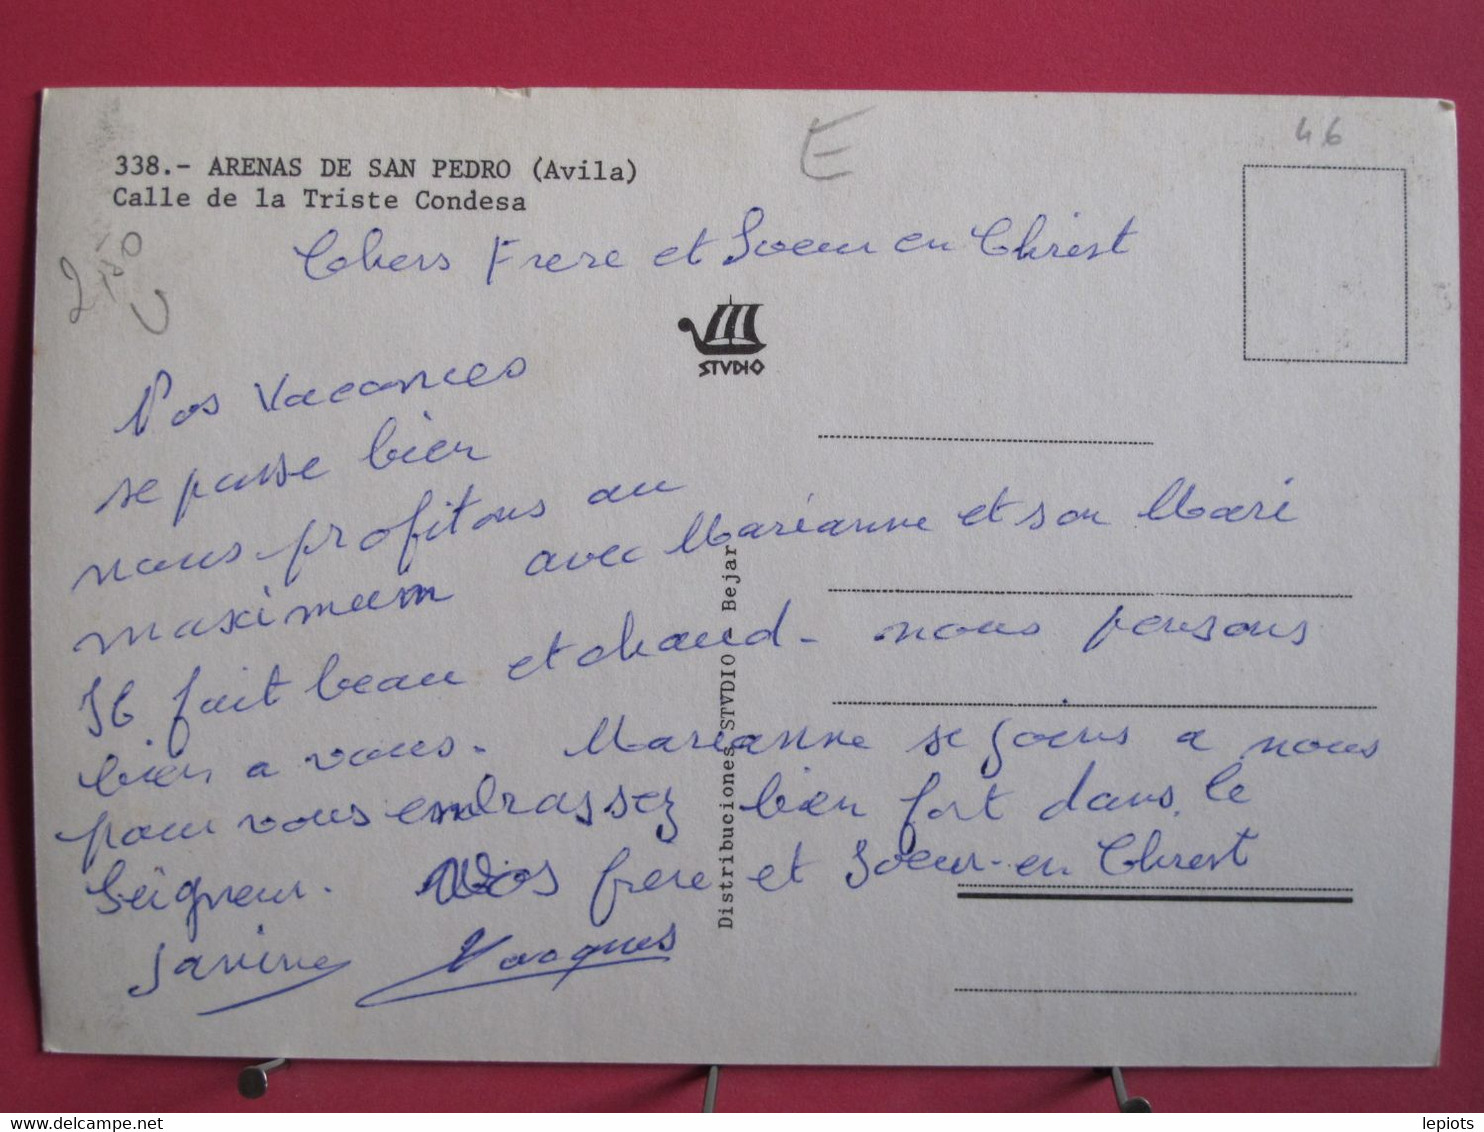 338.- ARENAS DE SAN PEDRO (Avila)
Calle de la Triste Condesa
E
46
Chers Frere et Soeur en Christ
STVDIO
Nos vacances
se passe bien
nous profitons au
maximum avec Marianne et son Mari
Il fait beau et chaud - nous pensons
bien a vous. Marianne se joins a nous
pour vous embrassez bien fort dans le
Seigneur. Vos frere et Soeur en Christ
Janine Jacques
Distribuciones STVDIO - Bejar
lepiots